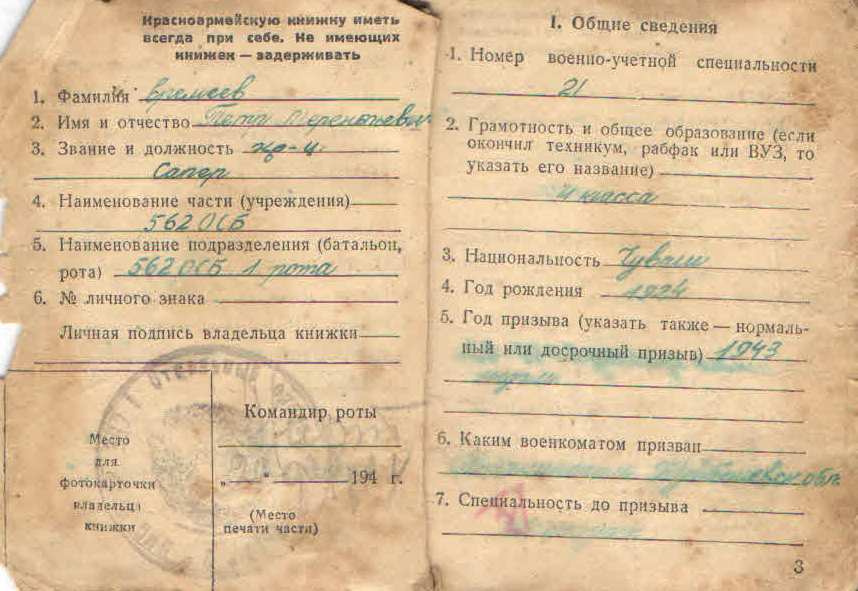 Красноармейскую книжку иметь
всегда при себе. Не имеющих
книжек — задерживать
1. Фамилия
2. Имя и отчество Петр Терентьевич
3. Звание и должность кр-ц
Сапер
4. Наименование части (учреждения)
562 ОСБ
5. Наименование подразделения (батальон,
рота) 562 ОСБ 1 рота
6. № личного знака
Личная подпись владельца книжки
Место
для
фотокарточки
владельца
книжки
Командир роты
„ “ 194 г.
(Место
печати части)
I. Общие сведения
1. Номер военно-учетной специальности
21
2. Грамотность и общее образование (если
окончил техникум, рабфак или ВУЗ, то
указать его название)
4 класса
3. Национальность Чуваш
4. Год рождения 1924
5. Год призыва (указать также — нормаль-
ный или досрочный призыв) 1943
6. Каким военкоматом призван
Куйбышевск. обл.
7. Специальность до призыва
3